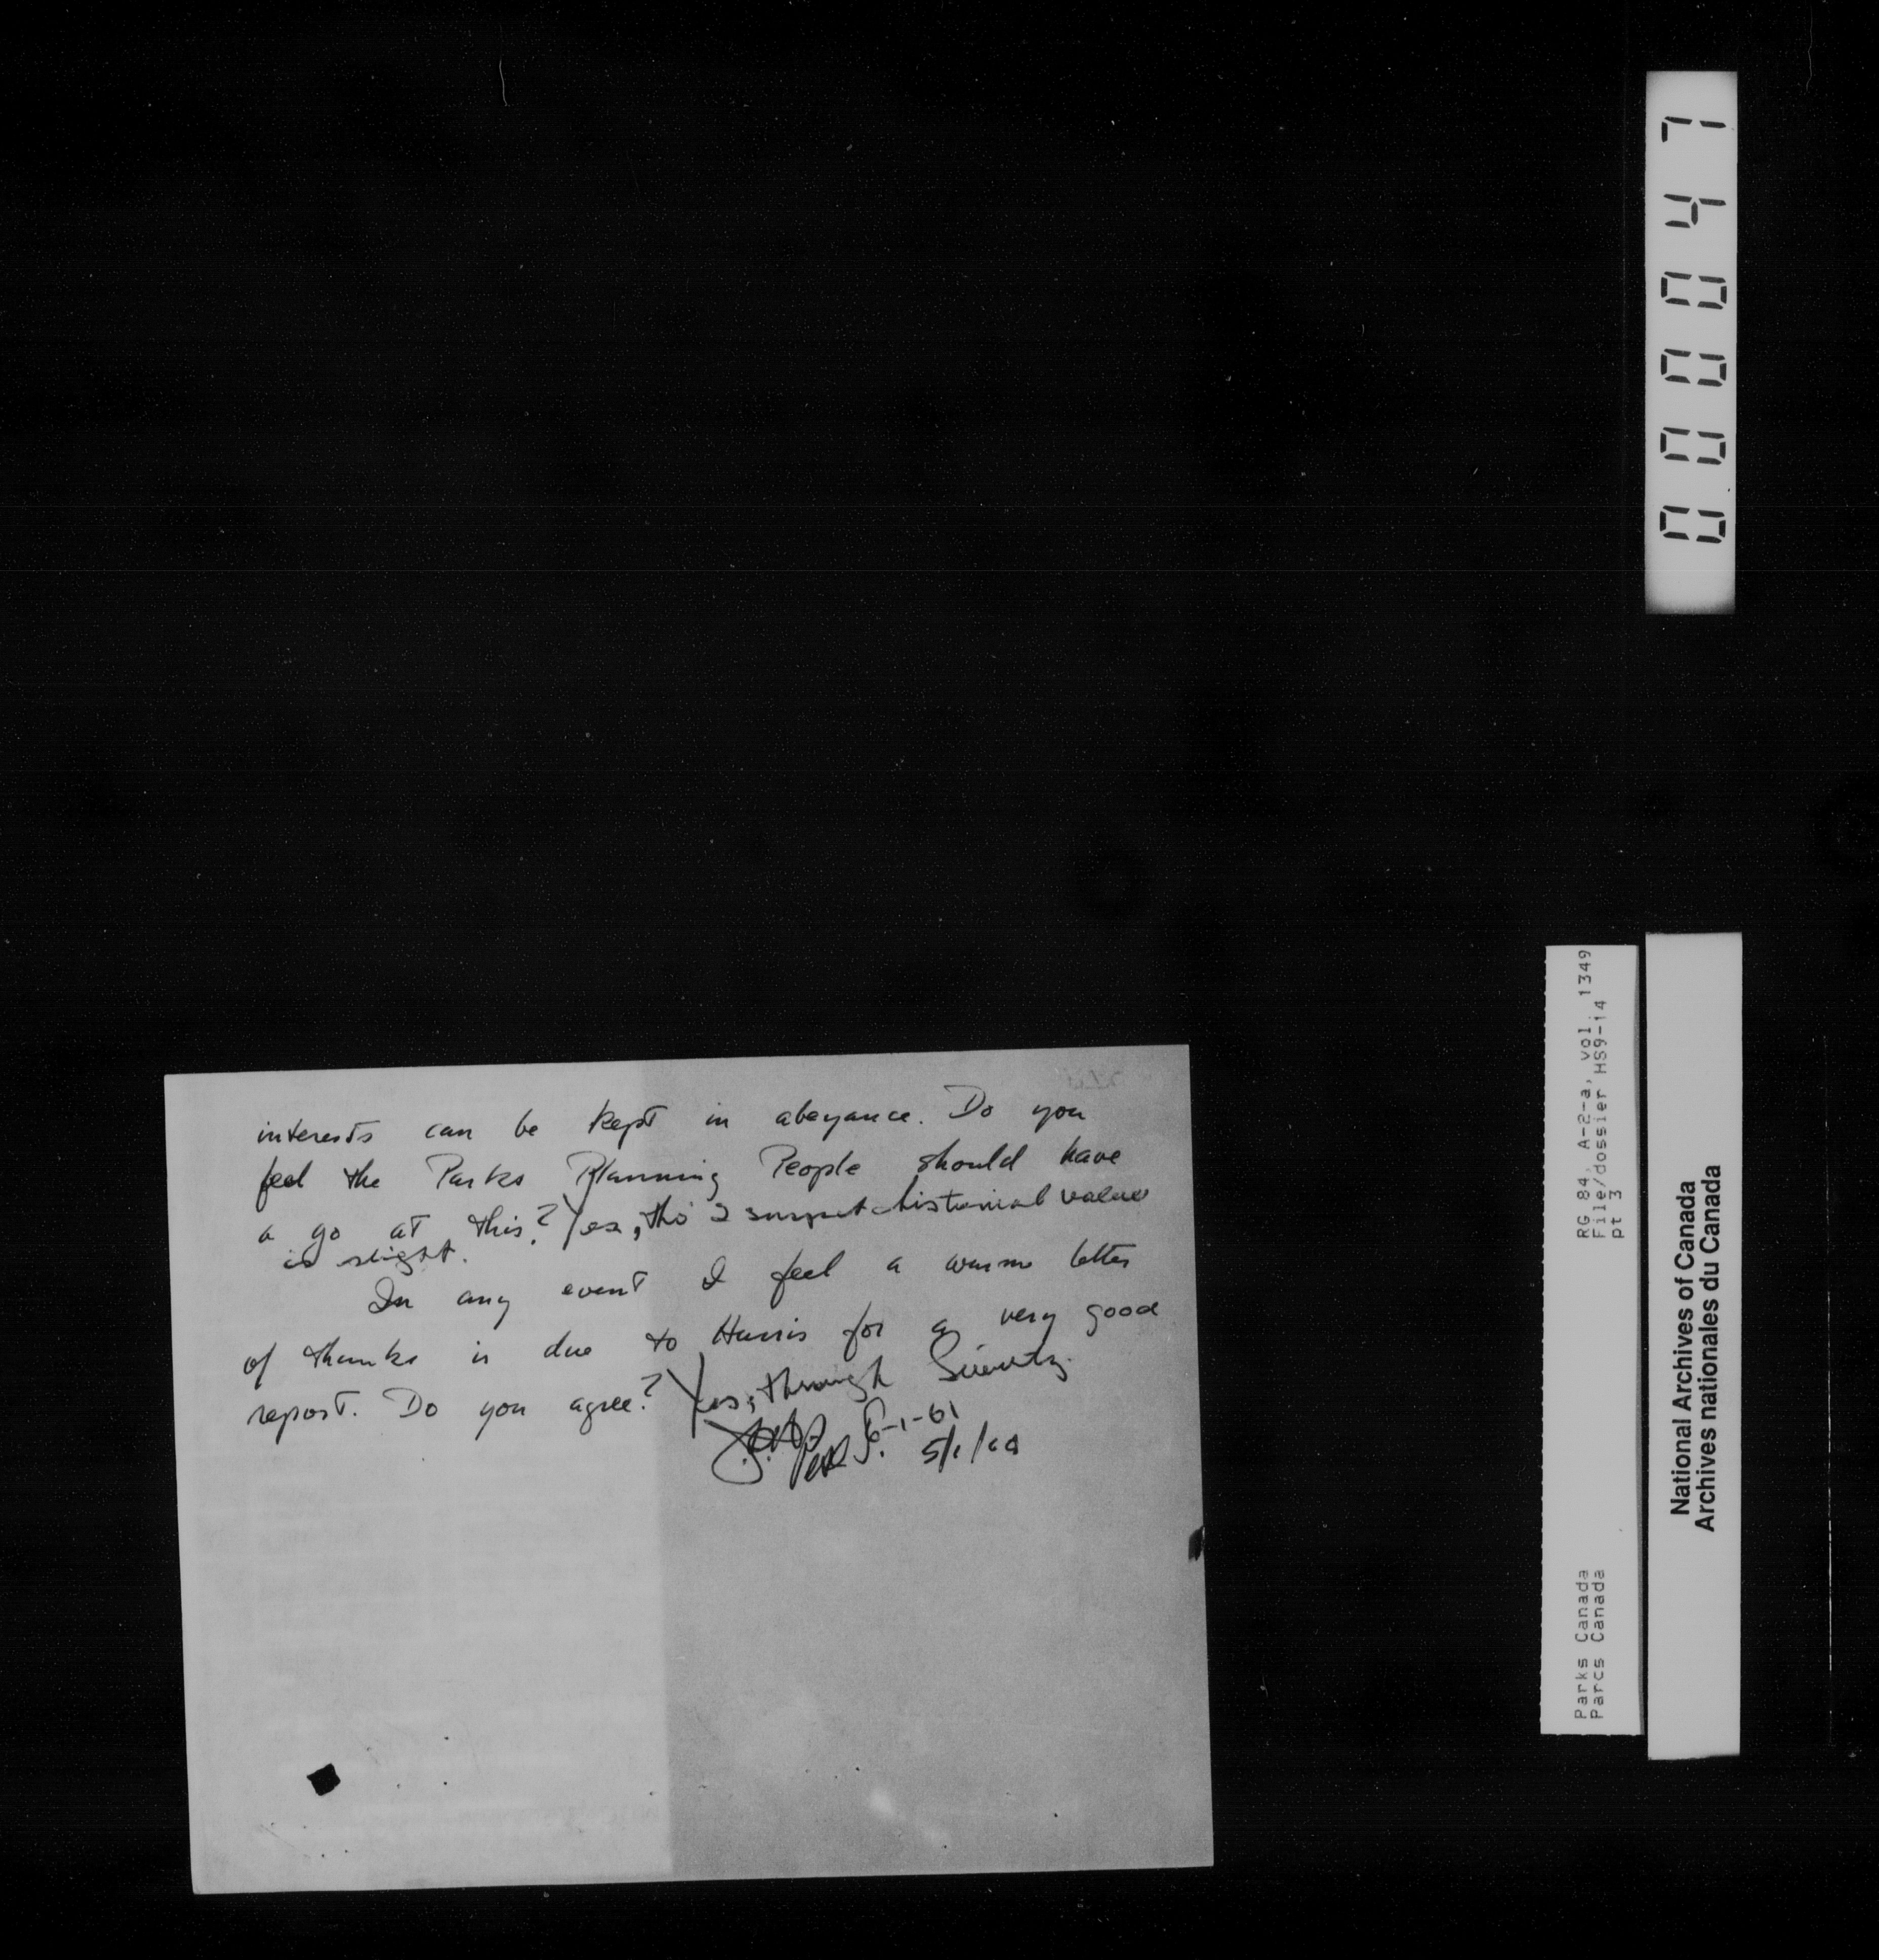 interests can be kept in abeyance. Do you
feel the Parks Planning People should have
a go at this? Yes, tho' I suspect historical value
is slight.
In any event I feel a warm letter
of thanks is due to Harris for a very good
report. Do you agree? Yes, through
6-1-61
5/1/
000047
RG 84, A-2-a, vol. 1349
File/dossier HS9-14
pt 3
Parks Canada
Parcs Canada
National Archives of Canada
Archives nationales du Canada